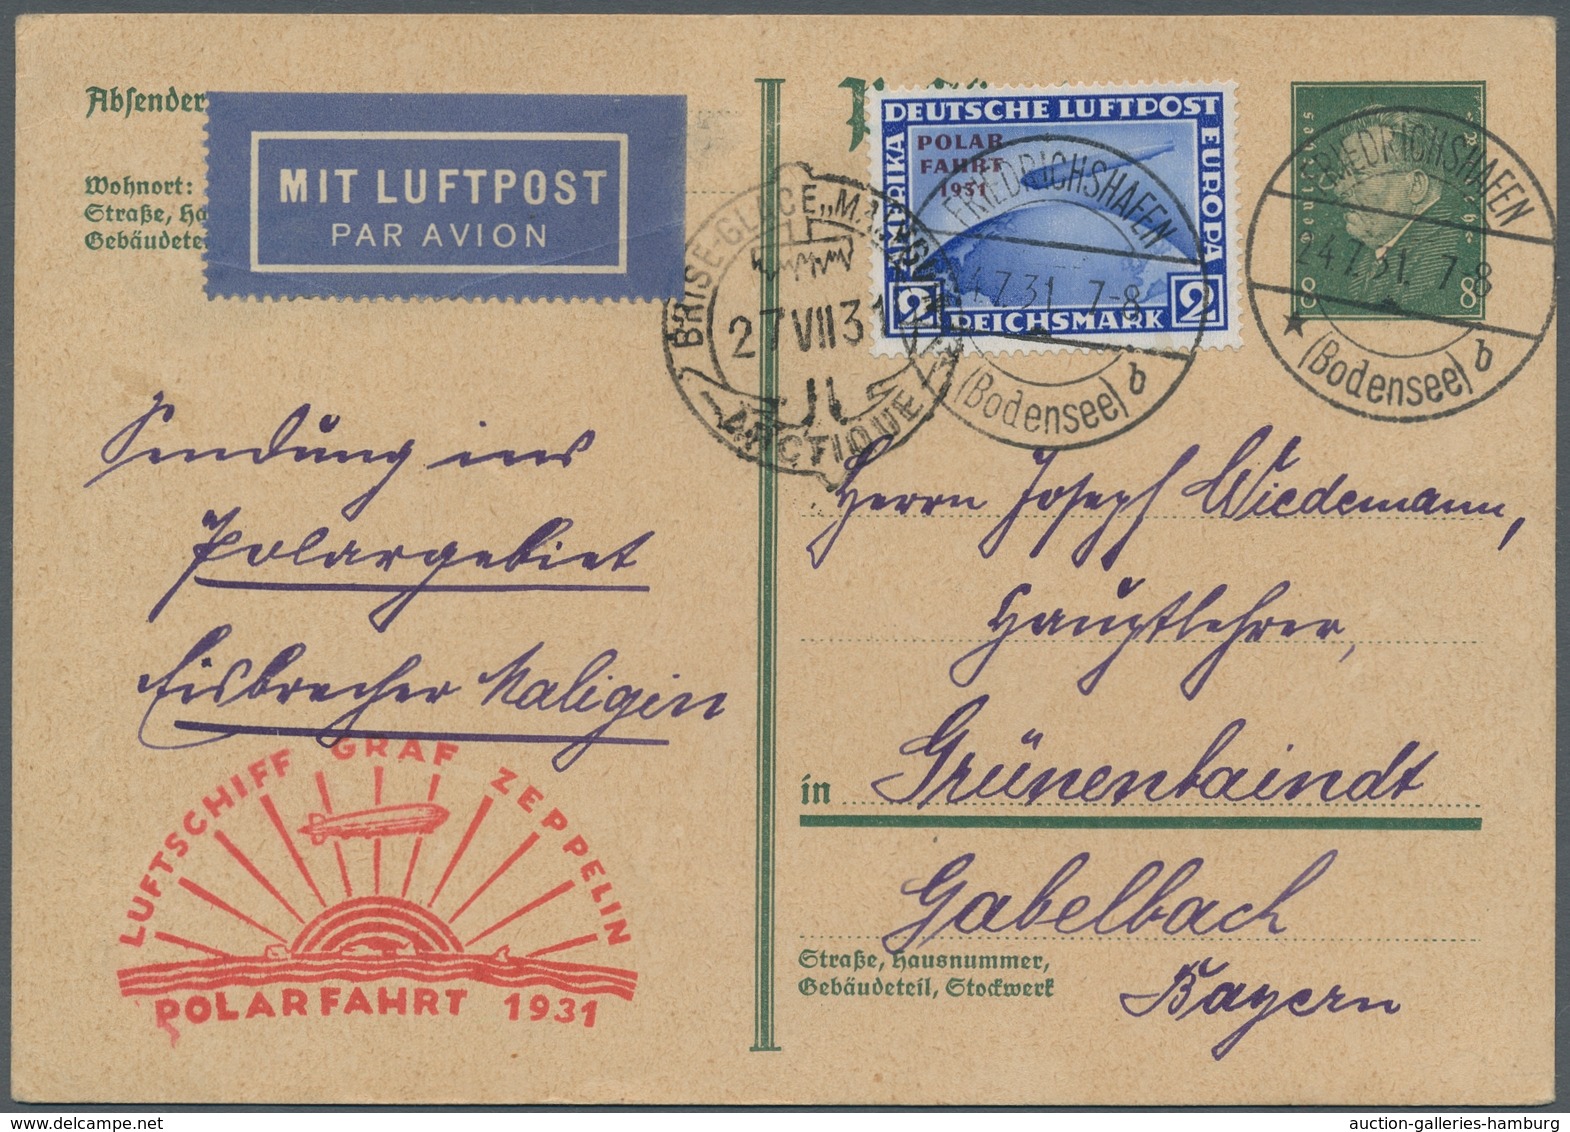 Absender
Wohnort:
Straße, Ha
Gebäudetei
MIT LUFTPOST
PAR AVION
DEUTSCHE LUFTPOST
EUROPA
POLAR
FAHRT
1931
2 REICHSMARK 2
Deutsches Reich
8 8
FRIEDRICHSHAFEN
24.7.31. 7-8
(Bodensee) b
FRIEDRICHSHAFEN
24.7.31. 7-8
(Bodensee) b
BRISE-GLACE „MALYGUINE"
27 VII 31
ARCTIQUE
Sendung ins
Polargebiet
Eisbrecher Maligin
Herrn Joseph Wiedemann,
Hauptlehrer,
in Grünenbaindt
Gabelbach
Straße, Hausnummer,
Gebäudeteil, Stockwerk
Bayern
LUFTSCHIFF GRAF ZEPPELIN
POLARFAHRT 1931
auction-galleries-hamburg